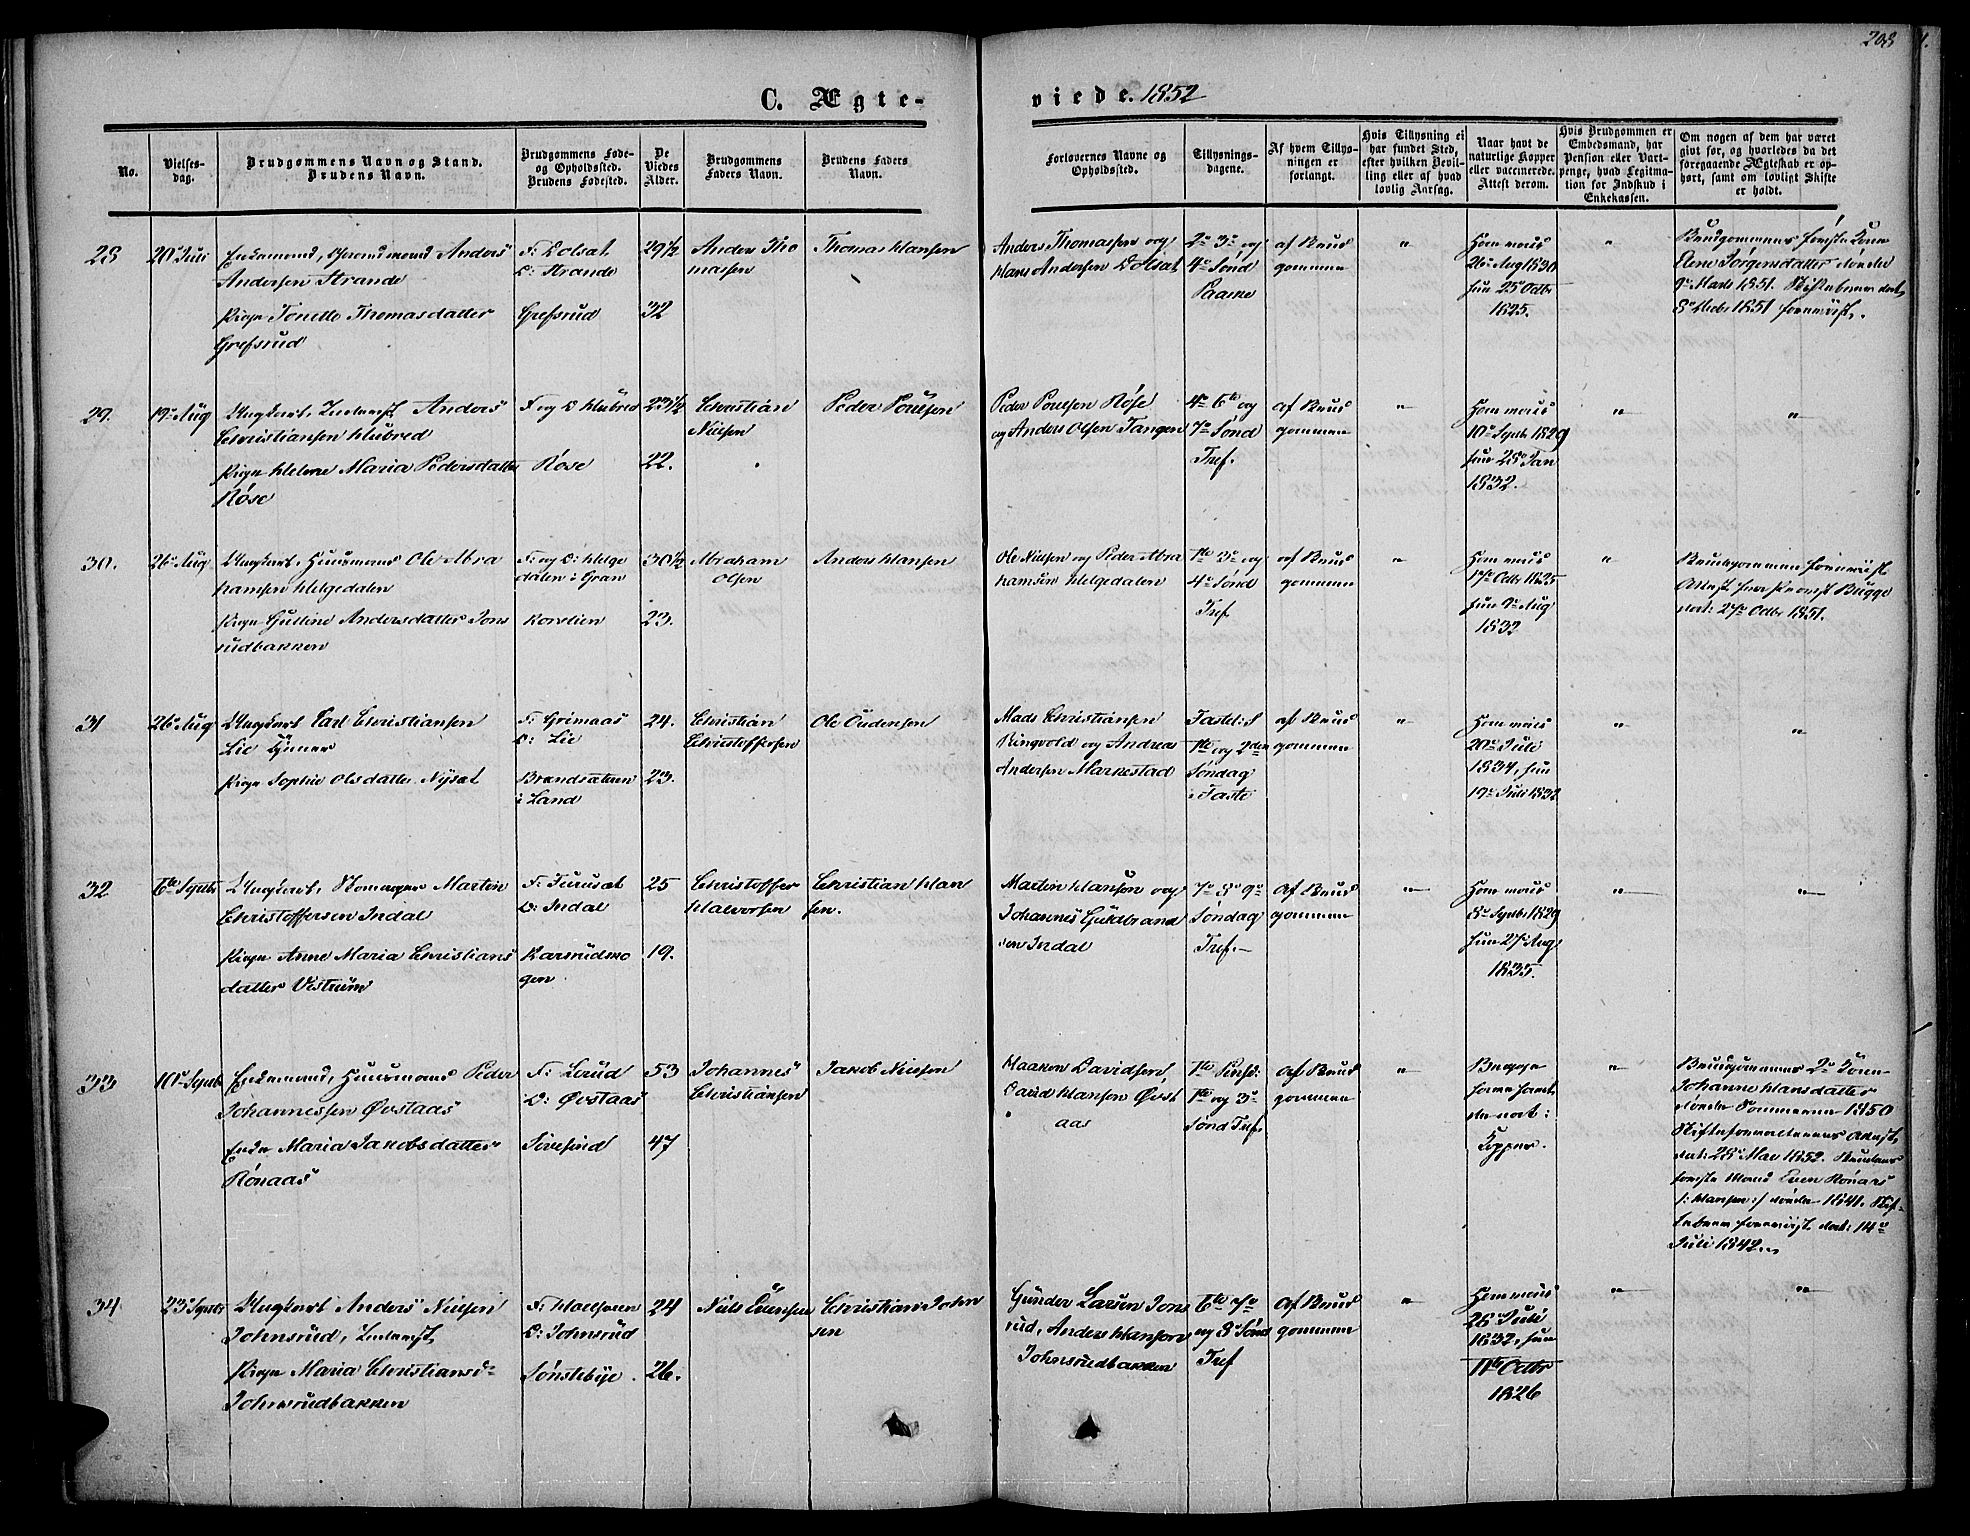 208
C. Ægte-
viede. 1852
No.
Vielses-
dag.
Brudgommens Navn og Stand.
Brudens Navn.
Brudgommens Føde-
og Opholdssted.
Brudens Fødested.
De
Viedes
Alder.
Brudgommens
Faders Navn.
Brudens Faders
Navn.
Forlovernes Navne og
Opholdssted.
Tillysnings-
dagene.
Af hvem Tillys-
ningen er
forlangt.
Hvis Tillysning ei
har fundet Sted,
efter hvilken Bevil-
ling eller af hvad
lovlig Aarsag.
Naar havt de
naturlige Kopper
eller vaccinerede.
Attest derom.
Hvis Brudgommen er
Embedsmand, har
Pension eller Vart-
penge, hvad Legitima-
tion for Indskud i
Enkekassen.
Om nogen af dem har været
gift før, og hvorledes da det
foregaaende Ægteskab er op-
hørt, samt om lovligt Skifte
er holdt.
28
20 Juli
Enkemand, Anders
Andersen Strande
Pige Tonette Thomasdatter
Grefsrud
F: Dolsat
O: Strande
Grefsrud
29½
32
Anders Tho
massen
Thomas Hansen
Anders Thomassen og
Hans Andersen Dolsat
2n 3n og
4n Sønd
Paaske
af Brud
gommen
"
Ham
26n Aug 1830
hun 25n Octbr
1825.
"
Brudgommens første Kone
Lene Jørgensdatter døde
9n Marts 1851. Skiftebrev dat.
1851 foreviist.
29.
19n Aug
Ungkarl, Anders
Christiansen Hubred
Pige Helene Maria Pedersdatter
Røse
F og O Hubred
Røse
23½
22.
Christian
Nielsen
Peder Poulsen
Peder Poulsen Røse
og Anders Olsen Tangen
4n 6te og
7n Sønd
Tref.
af Brud
gommen
"
Ham
10n Septb 1829
hun 28n Jan
1832.
"
"
30.
26n Aug
Ungkarl, Huusmand Ole Abra
hamsen Helgedalen
Pige Gulline Andersdatter Jons
rudbakken
F: og O: Helge
dalen i Gran
Korslien
30½
23.
Abraham
Olsen
Anders Hansen
Ole Nielsen og Peder Abra
hamsen Helgedalen
1te 3n og
4n Sønd
Tref
af Brud
gommen
"
Ham
17n Octbr 1825
hun 9n Aug
1832
"
Brudgommen foreviist
Attest fra Bugge
dat: 27n Octbr 1851.
31
26n Aug
Ungkarl Carl Christiansen
Lie
Pige Sophie Olsdatter Nysæt
F: Grimaas
O: Lie
Brandsætren
i Land
24.
23.
Christian
Christoffersen
Ole Oudensen
Mads Christiansen
Ringvold og Andreas
Andersen Markestad
Faste: S
1te og 2den
Søndag
i Faste
af Brud
gommen
"
Ham
20n Juli
1834, hun
19n Juli 1832
"
"
32
6te Septbr
Ungkarl, Martin
Christoffersen Indal
Pige Anne Maria Christians
datter Vestrum
F: Furusæt
O: Indal
Karsrudmo
gen
25
19.
Christoffer
Halvorsen
Christian Han
sen.
Martin Hansen og
Johannes Guldbrand
sen Indal
7n 8n 9n
Søndag
Tref.
af Brud
gommen
"
Ham
8n Septb 1829
hun 27n Aug
1835.
"
"
33
10n Septbr
Enkemand, Huusmand Peder
Johannessen Øvstaas
Enke Maria Jakobsdatter
Rønaas
F: Lerud
O: Øvstaas
Siversrud
53
47
Johannes
Christiansen
Jakob Nielsen
Haaken Davidsen
David Hansen Øvst
aas
1te Pinsd:
1te og 3n
Sønd Tref.
af Brud
gommen
"
Begge
havt
de nat:
Kopper.
"
Brudgommens 2n Kone
Johanne Hansdatter
døde Sommeren 1850
Skifteforvalterens Attest,
dat: 28n Mai 1852. Brudens
første Mand Even Rønaas
/: Hansen :/ døde 1841. Skif-
tebrev foreviist dat: 14n
Juli 1842.
34
23n Septbr
Ungkarl Anders Nielsen
Johnsrud,
Pige Maria Christiansd:
Johnsrudbakken
F:
O: Johnsrud
Sønstebye.
24
26.
Niels Evensen
Christian John
sen
Gunder Larsen Jons
rud, Anders Hansen
Johnsrudbakken
6te 7n
og 8n Sønd
Tref
af Brud
gommen
"
Ham
26 Juli
1832, hun
11te Octbr
1826
"
"